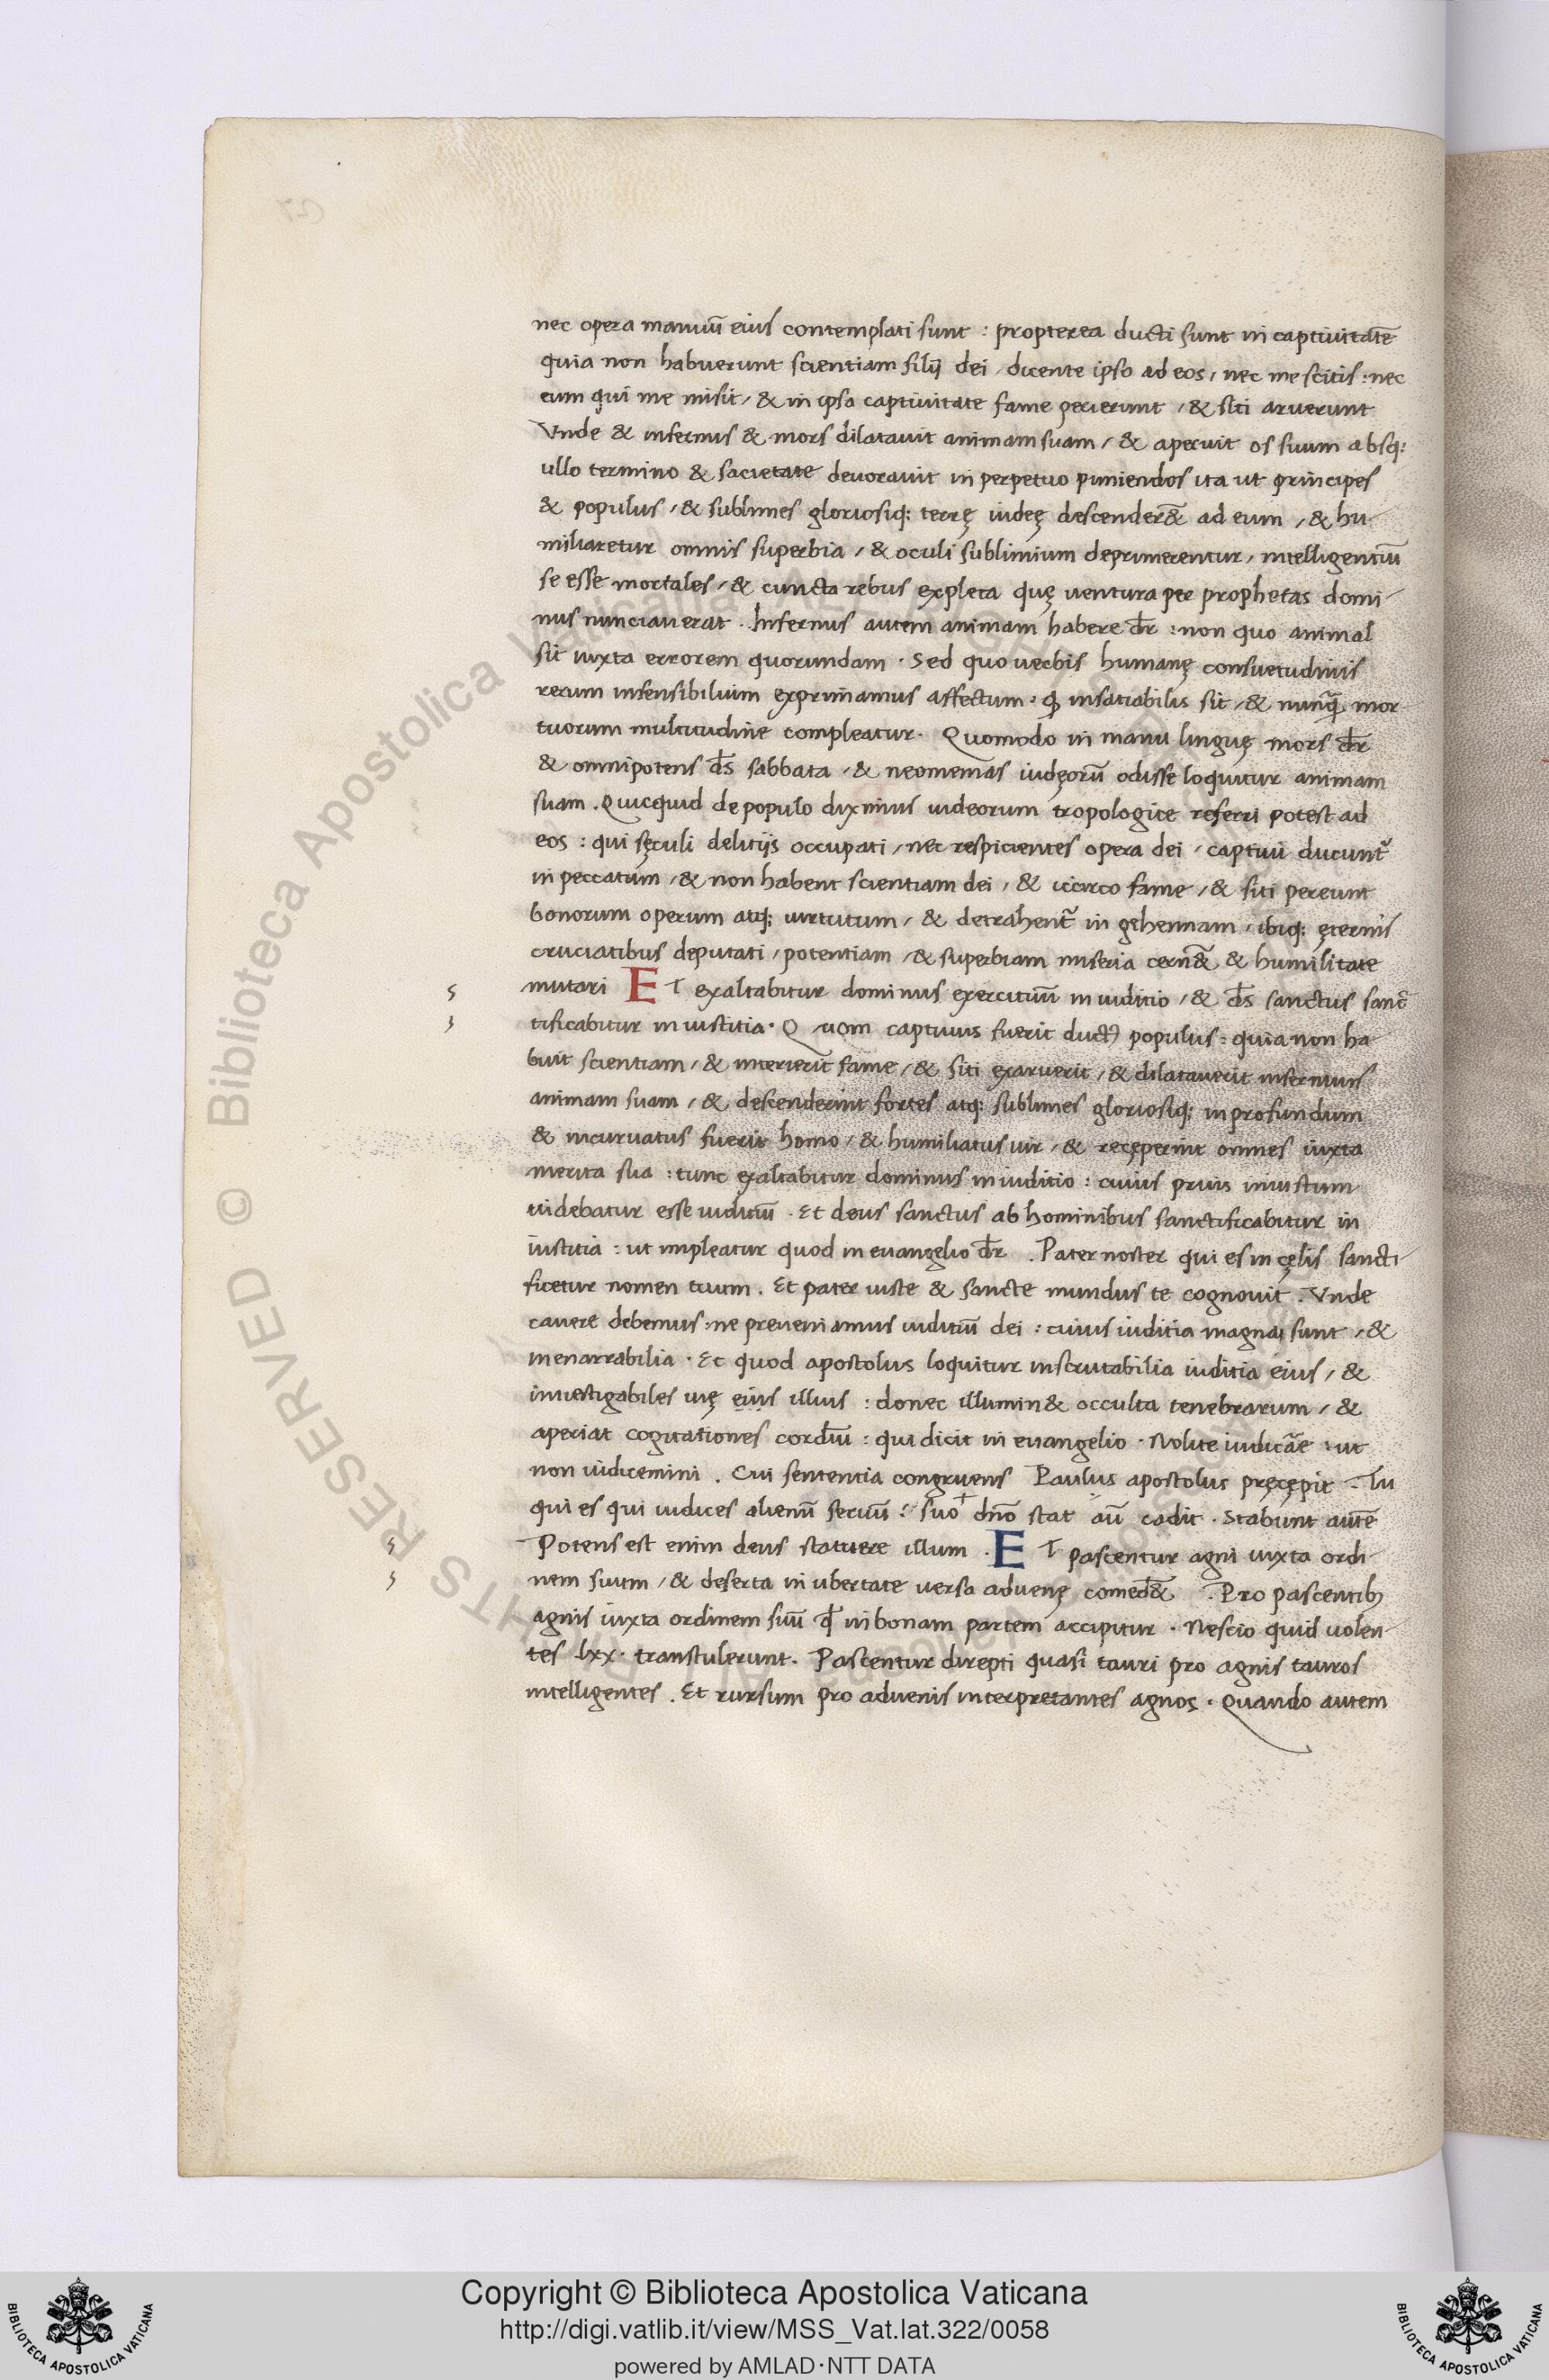 nec opera manuū eius contemplati sunt : propterea ducti sunt in captiuitatē
quia non habuerunt scientiam filij dei / dicente ipso ad eos / nec me scitis : nec
eum qui me misit / & in ipsa captiuitate fame perierunt / & siti aruerunt
Vnde & infernus & mors dilatauit animam suam / & aperuit os suum absq;
ullo termino & sacietate deuorauit in perpetuo puniendos ita ut principes
& populus / & sublimes gloriosiq; terrę iudeę descender&̄ ad eum / & hu-
miliaretur omnis superbia / & oculi sublimium deprimerentur / intelligentiū
se esse mortales / & cuncta rebus expleta quę uentura per prophetas domi-
nus nunciauerat . Infernus autem animam habere dr̄ : non quo animal
sit iuxta errorem quorundam . Sed quo uerbis humanę consuetudinis
rerum insensibilium exprimamus affectum . ꝙ insatiabilis sit / & nunq̄ mor
tuorum multitudine compleatur . Quomodo in manu linguę mors dr̄
& omnipotens ds̄ sabbata / & neomenias iudęorū odisse loquitur animam
suam . Quicquid de populo diximus iudeorum tropologice referri potest ad
eos : qui sęculi delitijs occupati / nec respicientes opera dei / captiui ducunt᷑
in peccatum / & non habent scientiam dei / & icirco fame / & siti pereunt
bonorum operum atq; uirtutum / & detrahent᷑ in gehennam / ibiq; ęternis
cruciatibus deputati / potentiam / & superbiam miseria cern&̄ & humilitate
mutari ET exaltabitur dominus exercituū in iuditio / & ds̄ sanctus sanc̄
tificabitur in iustitia . Quom captiuus fuerit duct᷒ populus : quia non ha
buit scientiam / & interierit fame / & siti exaruerit / & dilatauerit infernus
animam suam / & descenderint fortes atq; sublimes gloriosiq; in profundum
& incuruatus fuerit homo / & humiliatus uir / & recęperint omnes iuxta
merita sua : tunc exaltabitur dominus in iuditio : cuius prius iniustum
uidebatur esse iuditiū . Et deus sanctus ab hominibus sanctificabitur in
iustitia : ut impleatur quod in euangelio dr̄ . Pater noster qui es in cęlis sancti-
ficetur nomen tuum . Et pater iuste & sancte mundus te cognouit . Vnde
cauere debemus : ne preueniamus iuditiū dei : cuius iuditia magna sunt / &
inenarrabilia . Et quod apostolus loquitur inscrutabilia iuditia eius / &
inuestigabiles uię eius illius : donec illumin& occulta tenebrarum / &
aperiat cogitationes cordiū : qui dicit in euangelio . Nolite iudicāe : ut
non iudicemini . Cui sententia congruens Paulus apostolus pręcępit . Tu
qui es qui iudices alienū seruū : suo dn̄o stat aū cadit . Stabunt autē
Potens est enim deus statuere illum . ET pascentur agni iuxta ordi
nem suum / & deserta in ubertate uersa aduenę comed&̄ . Pro pascentib᷒
agnis iuxta ordinem suū qd̄ in bonam partem accipitur . Nescio quid uolen-
tes lxx . transtulerunt . Pascentur direpti quasi tauri pro agnis tauros
intelligentes . Et rursum pro aduenis interpretantes agnos . Quando autem
Copyright © Biblioteca Apostolica Vaticana
http://digi.vatlib.it/view/MSS_Vat.lat.322/0058
powered by AMLAD·NTT DATA